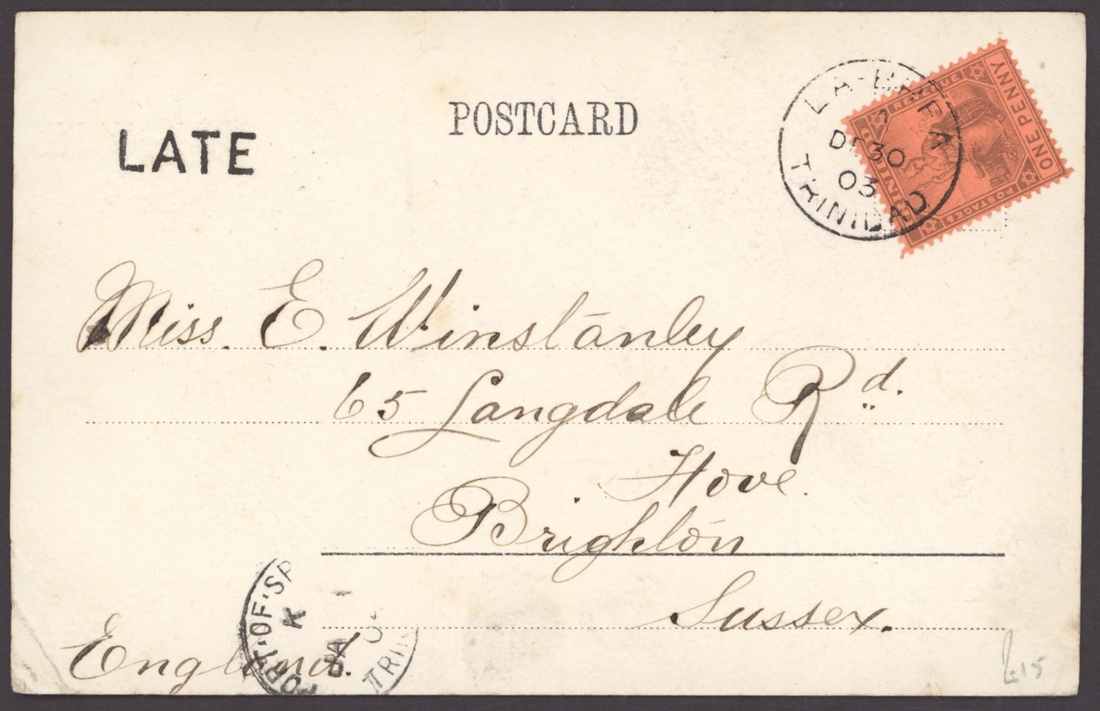 POSTCARD
LATE
LA-BREA
DE 30
03
TRINIDAD
REVENUE
ONE PENNY
POSTAGE &
Miss. E. Winstanley
65 Langdale Rd.
Hove.
Brighton
Sussex.
England.
PORT-OF-SP
K
TRIN
15